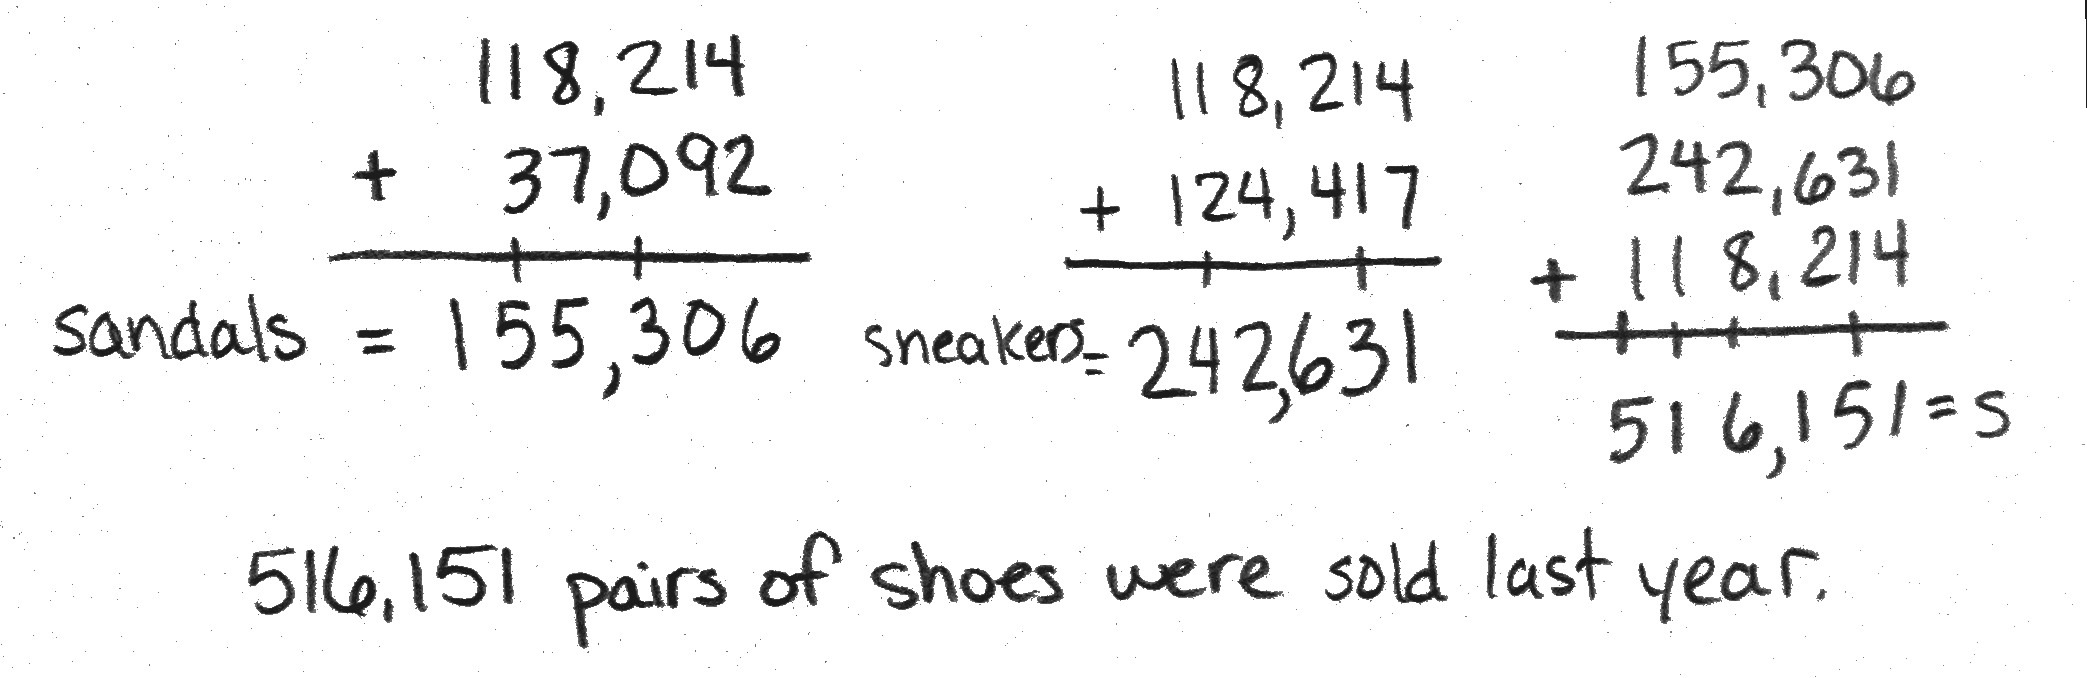 118,214
+ 37,092
sandals = 155,306
118,214
+ 124,417
sneakers = 242,631
155,306
242,631
+ 118,214
516,151 = s
516,151 pairs of shoes were sold last year.